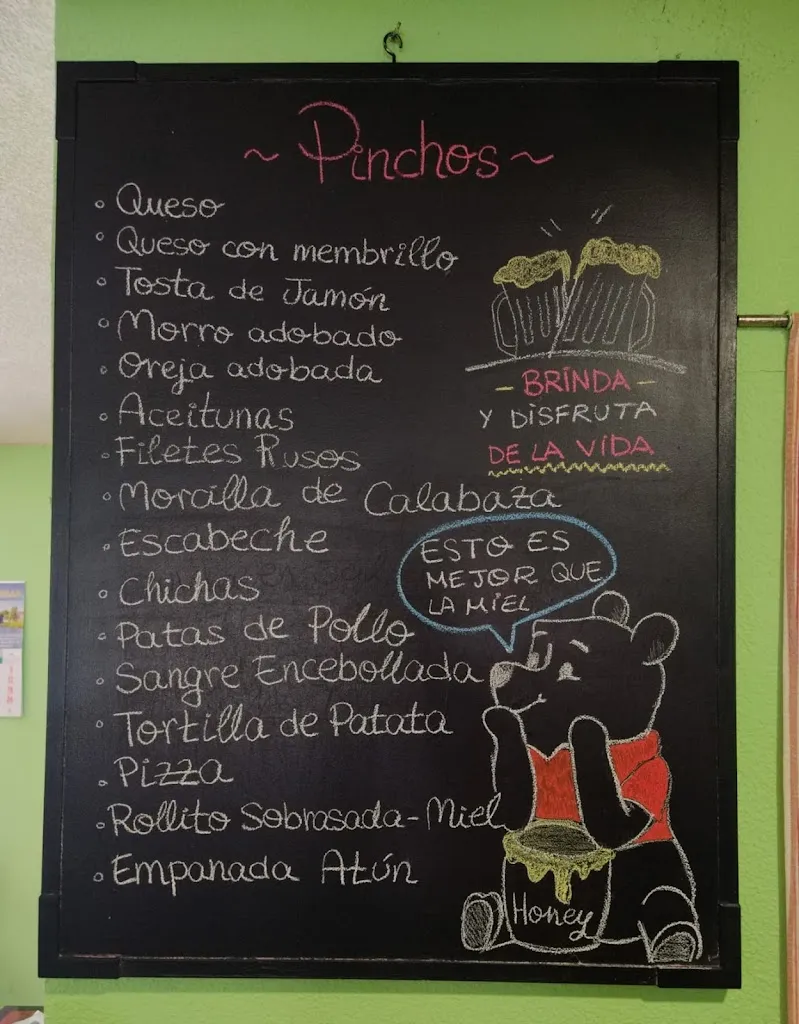 ~ Pinchos ~
Queso
Queso con membrillo
Tosta de Jamón
Morro adobado
Oreja adobada
Aceitunas
Filetes Rusos
Morcilla de Calabaza
Escabeche
Chichas
Patas de Pollo
Sangre Encebollada
Tortilla de Patata
Pizza
Rollito Sobrasada-Miel
Empanada Atún
- BRINDA -
Y DISFRUTA
DE LA VIDA
ESTO ES
MEJOR QUE
LA MIEL
Honey